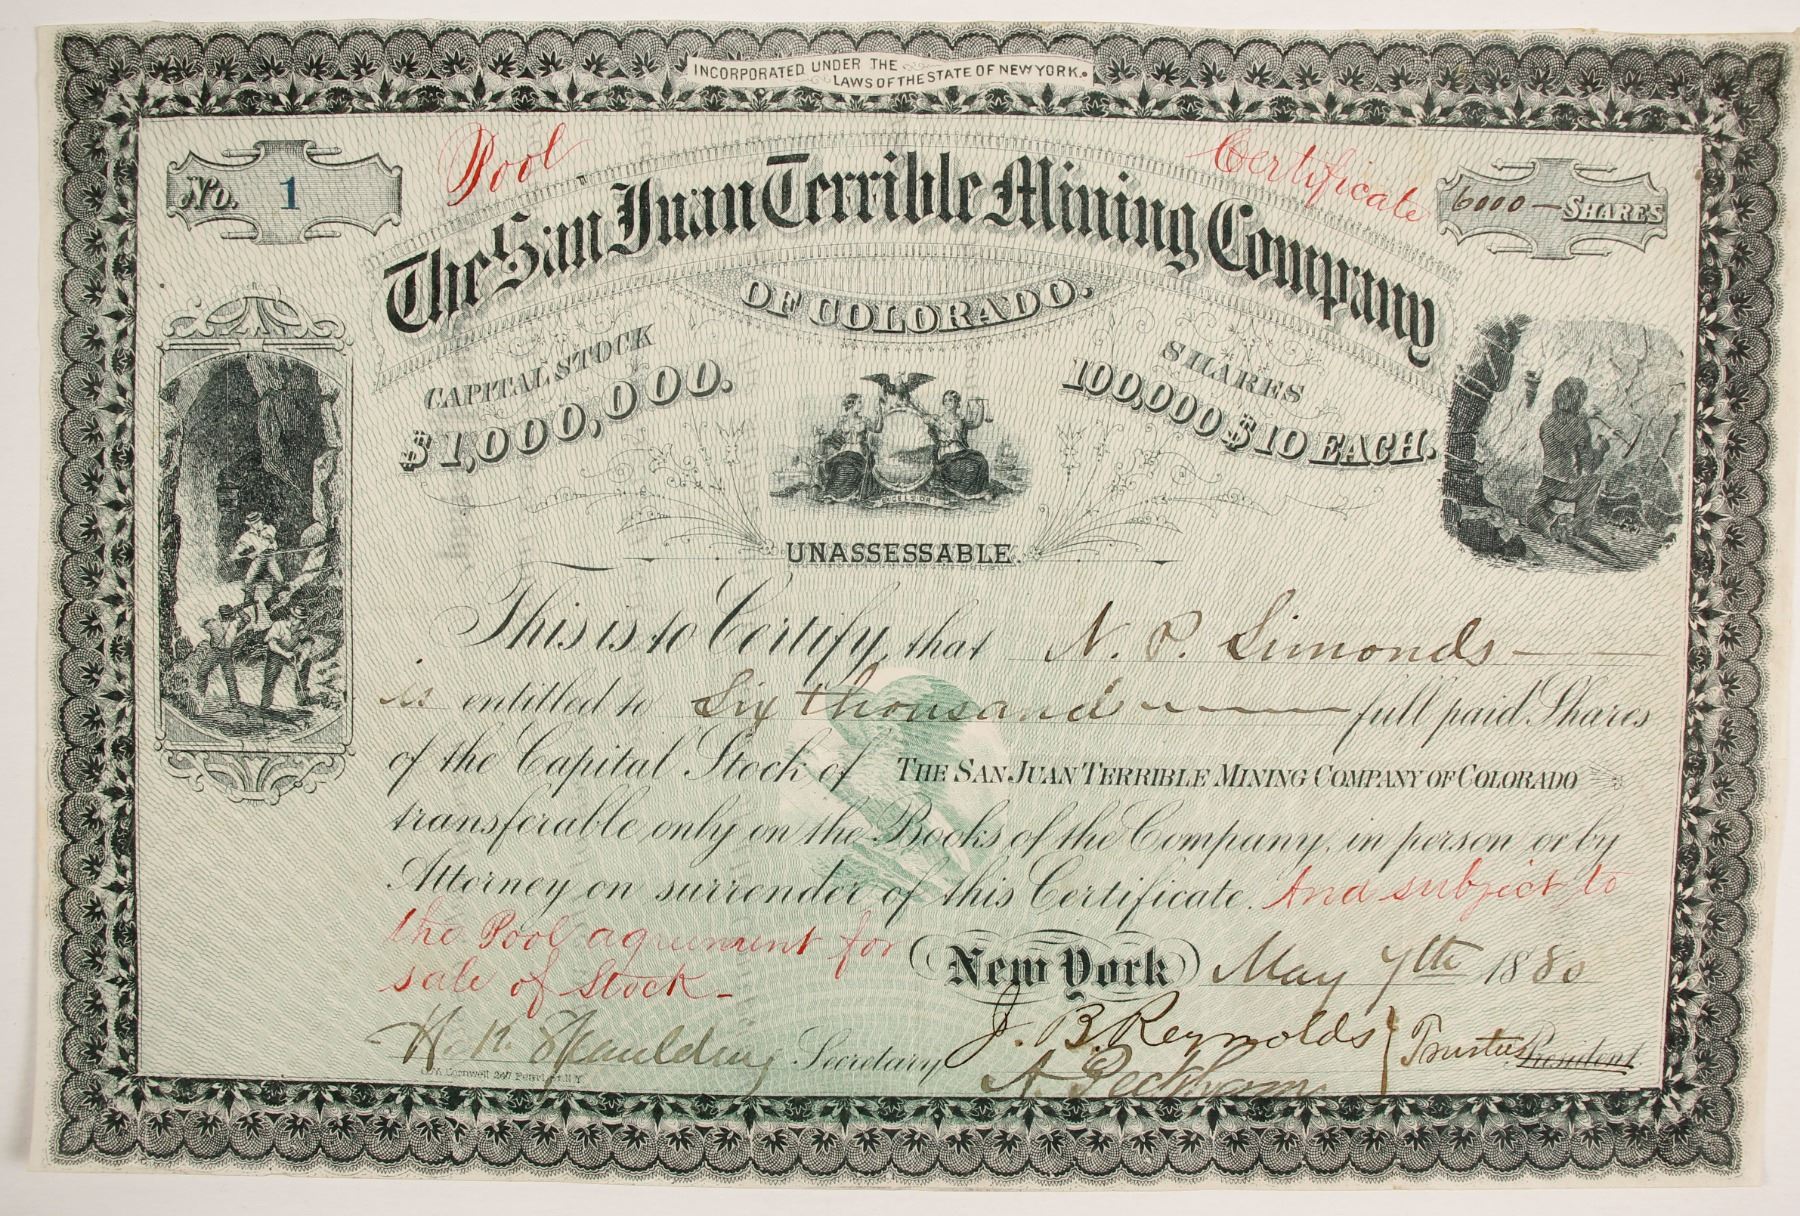 INCORPORATED UNDER THE
LAWS OF THE STATE OF NEW YORK.
No. 1
Pool
Certificate
6000 — SHARES
The San Juan Terrible Mining Company
OF COLORADO.
CAPITAL STOCK
$1,000,000.
SHARES
100,000 $10 EACH.
EXCELSIOR
UNASSESSABLE.
This is to Certify that N. P. Simonds
is entitled to Six thousand full paid Shares
of the Capital Stock of THE SAN JUAN TERRIBLE MINING COMPANY OF COLORADO
transferable only on the Books of the Company, in person or by
Attorney on surrender of this Certificate. And subject to
the Pool agreement for
sale of Stock.
New York May 7th 1880
H. N. Spaulding Secretary
J. B. Reynolds
A. Peckham
Trustees President
Cornwell 247 Pearl St. N.Y.